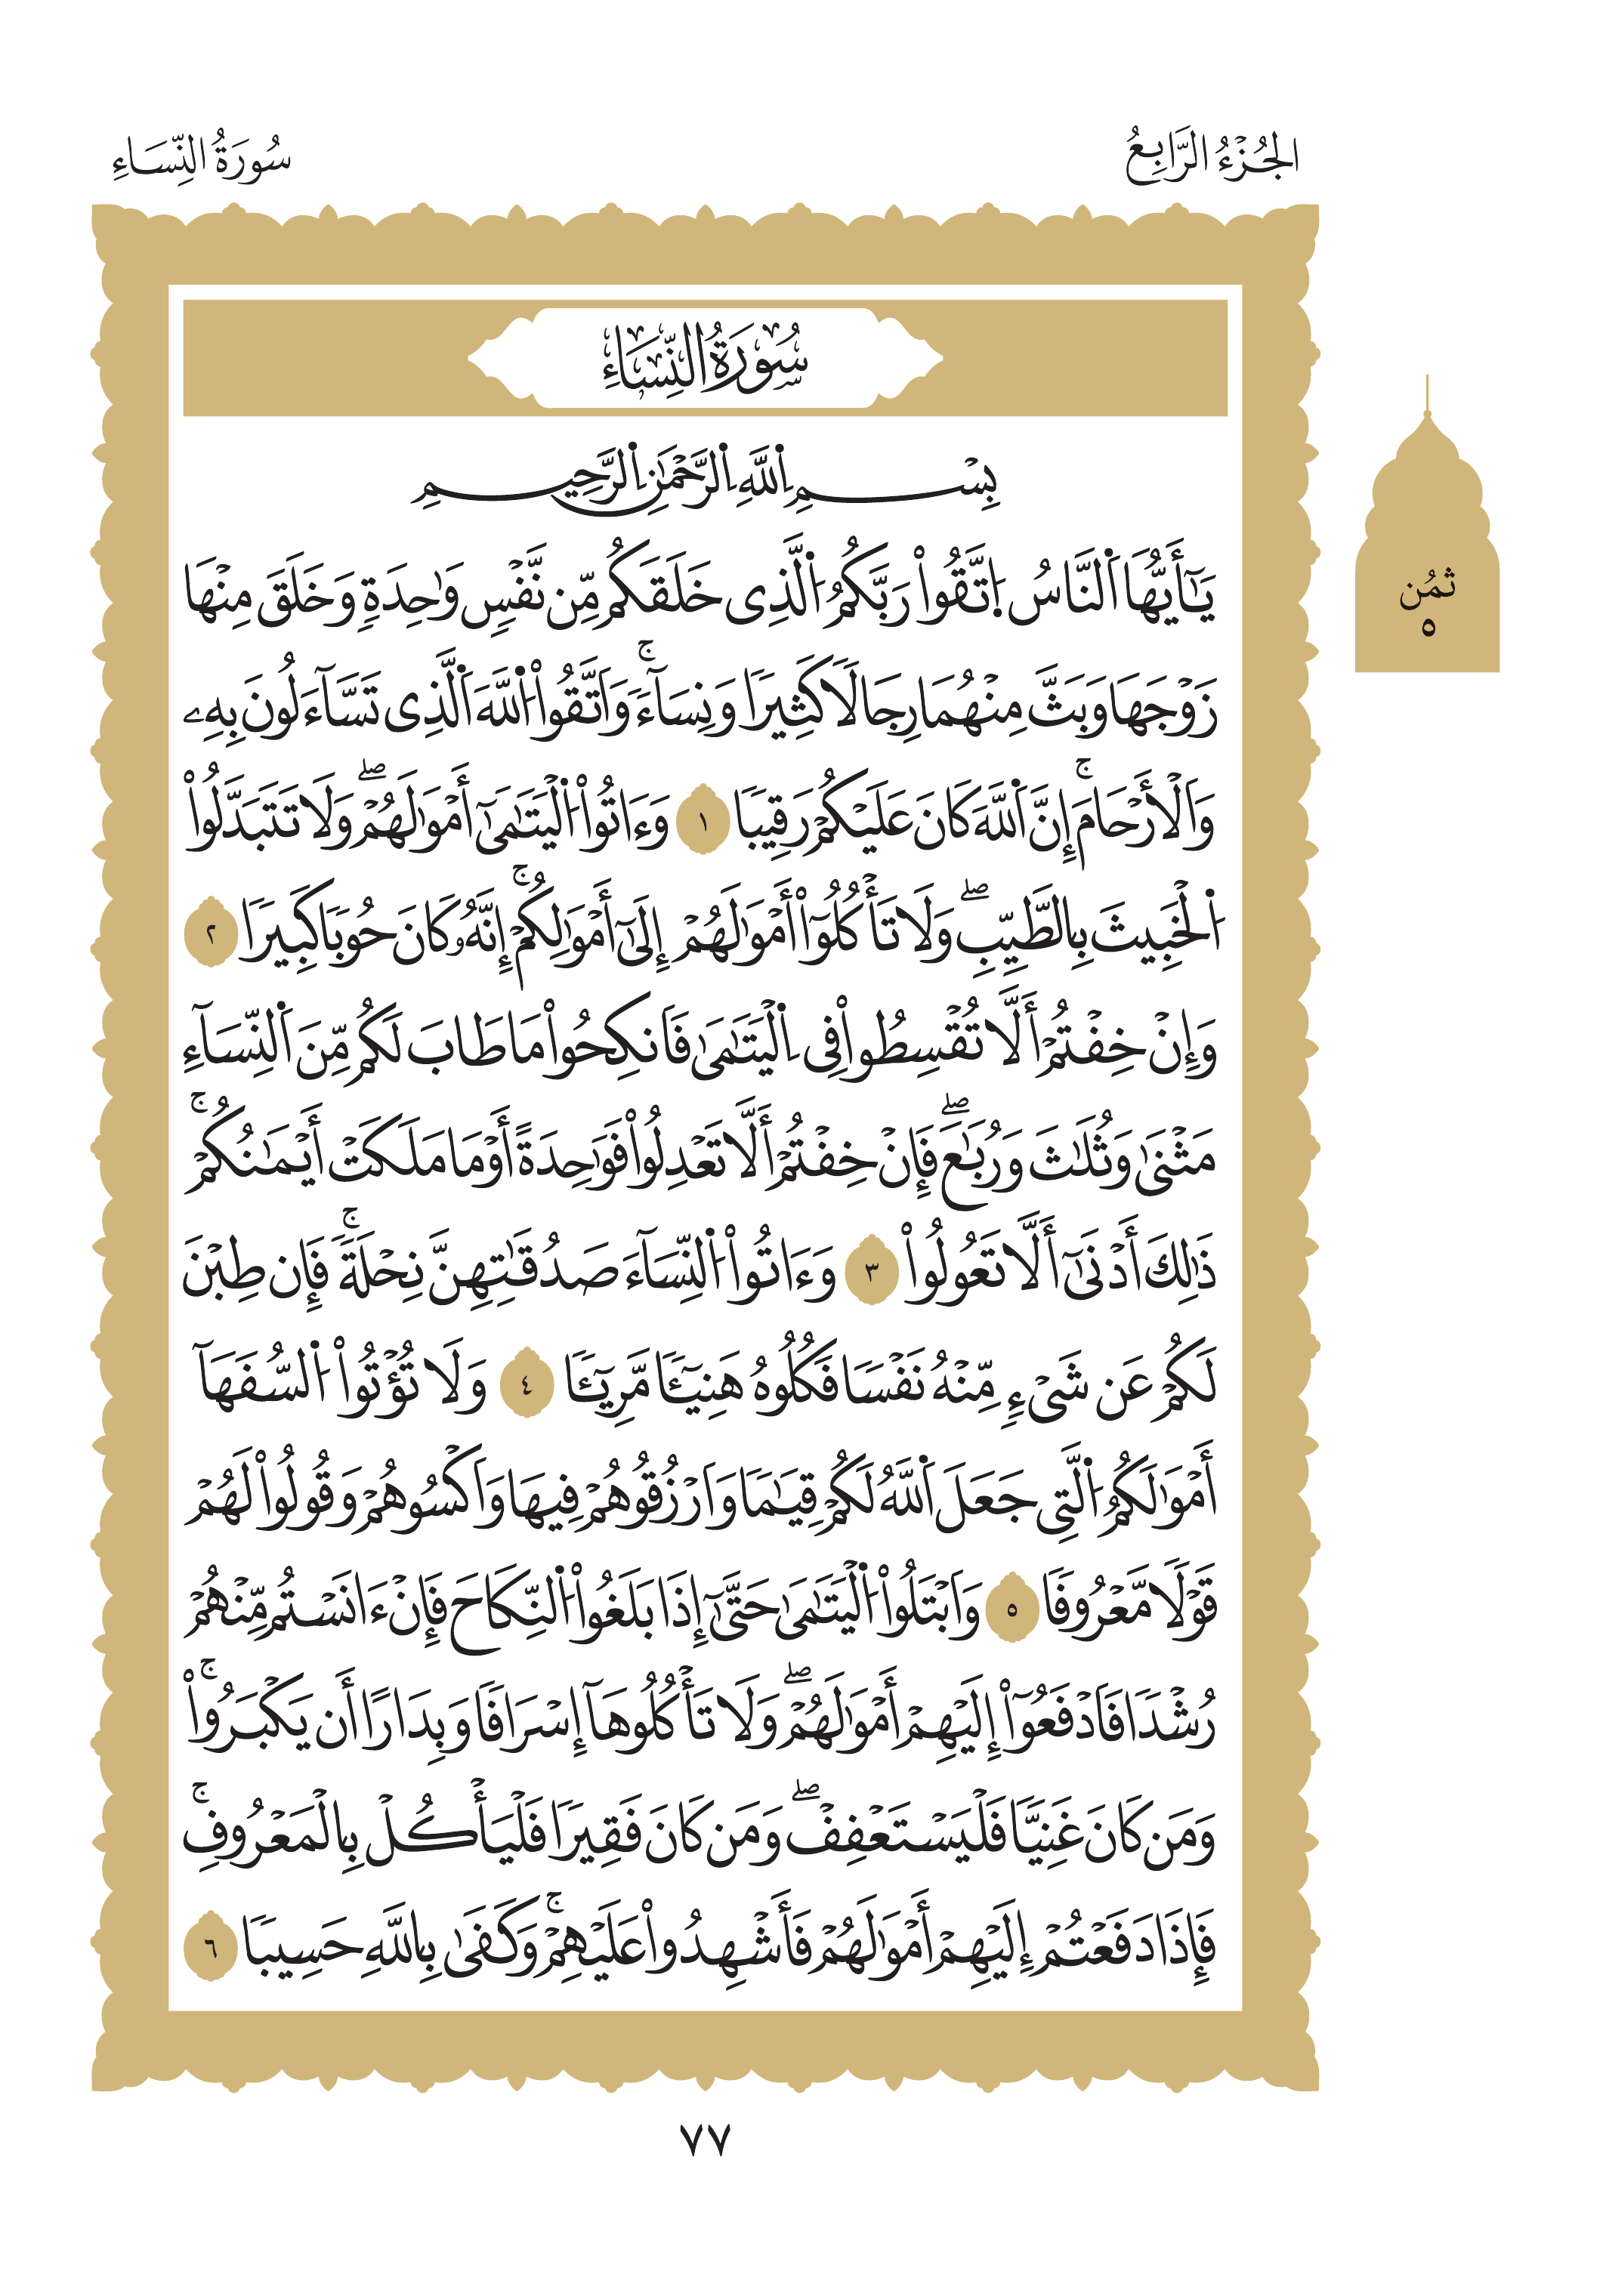 الجُزْءُ الرَّابِعُ
سُورَةُ النِّسَاءِ
سُورَةُ النِّسَاءِ
بِسْمِ اِ۬للَّهِ اِ۬لرَّحْمَٰنِ اِ۬لرَّحِيمِ
يَٰٓأَيُّهَا اَ۬لنَّاسُ اُ۪تَّقُواْ رَبَّكُمُ اُ۬لَّذِى خَلَقَكُم مِّن نَّفْسٖ وَٰحِدَةٖ وَخَلَقَ مِنْهَا
زَوْجَهَا وَبَثَّ مِنْهُمَا رِجَالٗا كَثِيرٗا وَنِسَآءٗۚ وَاَتَّقُواْ اُ۬للَّهَ اَ۬لَّذِى تَسَّآءَلُونَ بِهِۦ
وَاَلْأَرْحَامَۚ إِنَّ اَ۬للَّهَ كَانَ عَلَيْكُمْ رَقِيبٗا ١ وَءَاتُواْ اُ۬لْيَتَٰمَىٰٓ أَمْوَٰلَهُمْۖ وَلَا تَتَبَدَّلُواْ
اُ۬لْخَبِيثَ بِالطَّيِّبِۖ وَلَا تَأْكُلُوٓاْ أَمْوَٰلَهُمْ إِلَىٰٓ أَمْوَٰلِكُمْۚ إِنَّهُۥ كَانَ حُوبٗا كَبِيرٗا ٢
وَإِنْ خِفْتُمْ أَلَّا تُقْسِطُواْ فِى اِ۬لْيَتَٰمَىٰ فَاَنكِحُواْ مَا طَابَ لَكُم مِّنَ اَ۬لنِّسَآءِ
مَثْنَىٰ وَثُلَٰثَ وَرُبَٰعَۖ فَإِنْ خِفْتُمْ أَلَّا تَعْدِلُواْ فَوَٰحِدَةً أَوْ مَا مَلَكَتْ أَيْمَٰنُكُمْۚ
ذَٰلِكَ أَدْنَىٰٓ أَلَّا تَعُولُواْ ٣ وَءَاتُواْ اُ۬لنِّسَآءَ صَدُقَٰتِهِنَّ نِحْلَةٗۚ فَإِن طِبْنَ
لَكُمْ عَن شَىْءٖ مِّنْهُ نَفْسٗا فَكُلُوهُ هَنِيٓـٔٗا مَّرِيٓـٔٗا ٤ وَلَا تُؤْتُواْ اُ۬لسُّفَهَآ
أَمْوَٰلَكُمُ اُ۬لَّتِى جَعَلَ اَ۬للَّهُ لَكُمْ قِيَٰمٗا وَاَرْزُقُوهُمْ فِيهَا وَاَكْسُوهُمْ وَقُولُواْ لَهُمْ
قَوْلٗا مَّعْرُوفٗا ٥ وَاَبْتَلُواْ اُ۬لْيَتَٰمَىٰ حَتَّىٰٓ إِذَا بَلَغُواْ اُ۬لنِّكَاحَ فَإِنْ ءَانَسْتُم مِّنْهُمْ
رُشْدٗا فَاَدْفَعُوٓاْ إِلَيْهِمْ أَمْوَٰلَهُمْۖ وَلَا تَأْكُلُوهَآ إِسْرَافٗا وَبِدَارًا أَن يَكْبَرُواْۚ
وَمَن كَانَ غَنِيّٗا فَلْيَسْتَعْفِفْۖ وَمَن كَانَ فَقِيرٗا فَلْيَأْكُلْ بِالْمَعْرُوفِۚ
فَإِذَا دَفَعْتُمْ إِلَيْهِمْ أَمْوَٰلَهُمْ فَأَشْهِدُواْ عَلَيْهِمْۚ وَكَفَىٰ بِاللَّهِ حَسِيبٗا ٦
ثُمُن
٥
٧٧